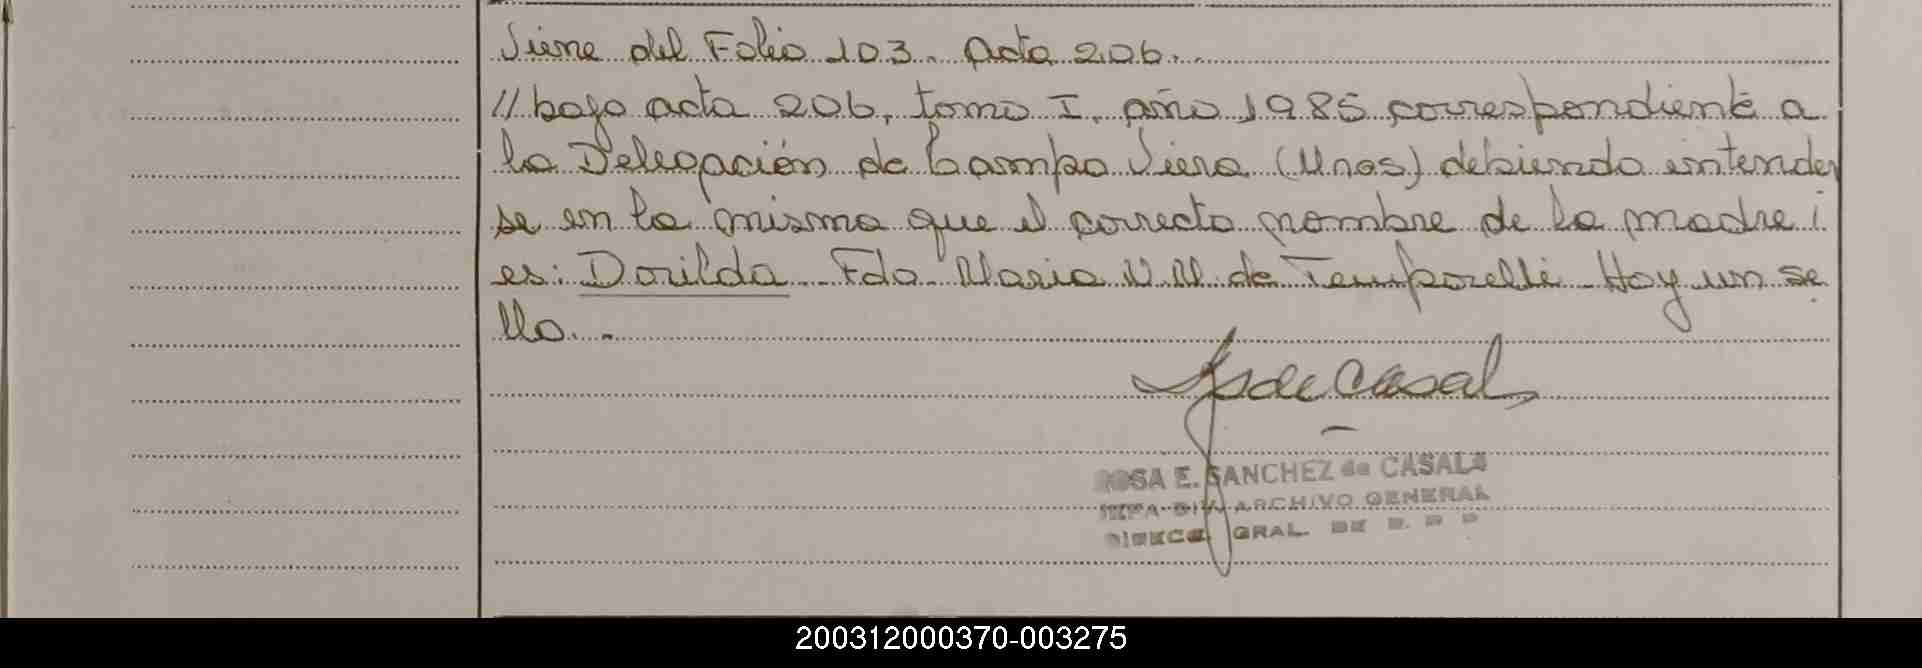 Viene del Folio 103. Acta 206.
// bajo acta 206, tomo I, año 1985 correspondiente a
la Delegación de Campo Viera (Mnes) debiendo entender
se en la misma que el correcto nombre de la madre
es: Dorilda. Fdo Maria N. M. de Temporelli - Hay un se
llo. -
de Casal
ROSA E. SANCHEZ de CASALS
JEFA DIV. ARCHIVO GENERAL
DIRECC. GRAL. DE R. P P
200312000370-003275